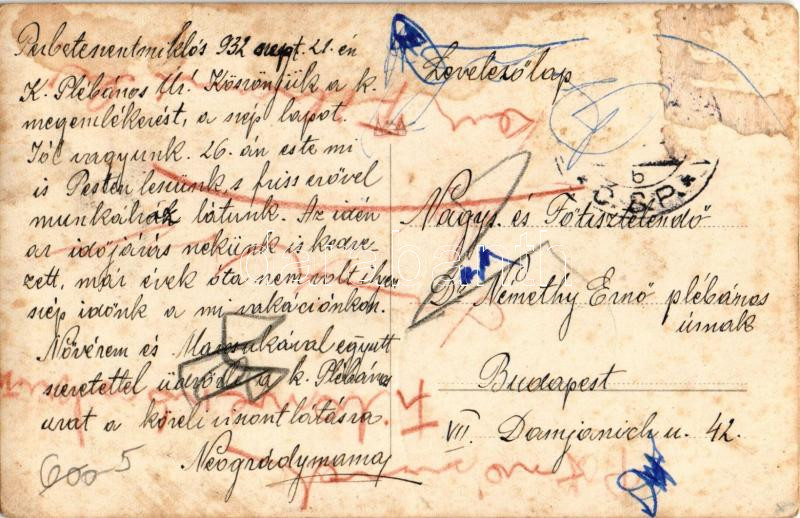 Perbeteszentmiklós 932 szept. 21.-én
K. Plébános Úr! Köszönjük a k.
megemlékezést, a szép lapot.
Jól vagyunk. 26.-án este mi
is Pesten leszünk s friss erővel
munkához látunk. Az idén
az időjárás nekünk is kedve-
zett, már évek óta nem volt ilyen
szép időnk a mi vakációnkon.
Nővérem és Mancsikával együtt
szeretettel üdvözli a k. Plébános
urat a közeli viszontlátásra
Neográdymama
600 5
Levelezőlap
Nagys. és Főtisztelendő
Dr. Némethy Ernő plébános
úrnak
Budapest
VII. Damjanich u. 42.